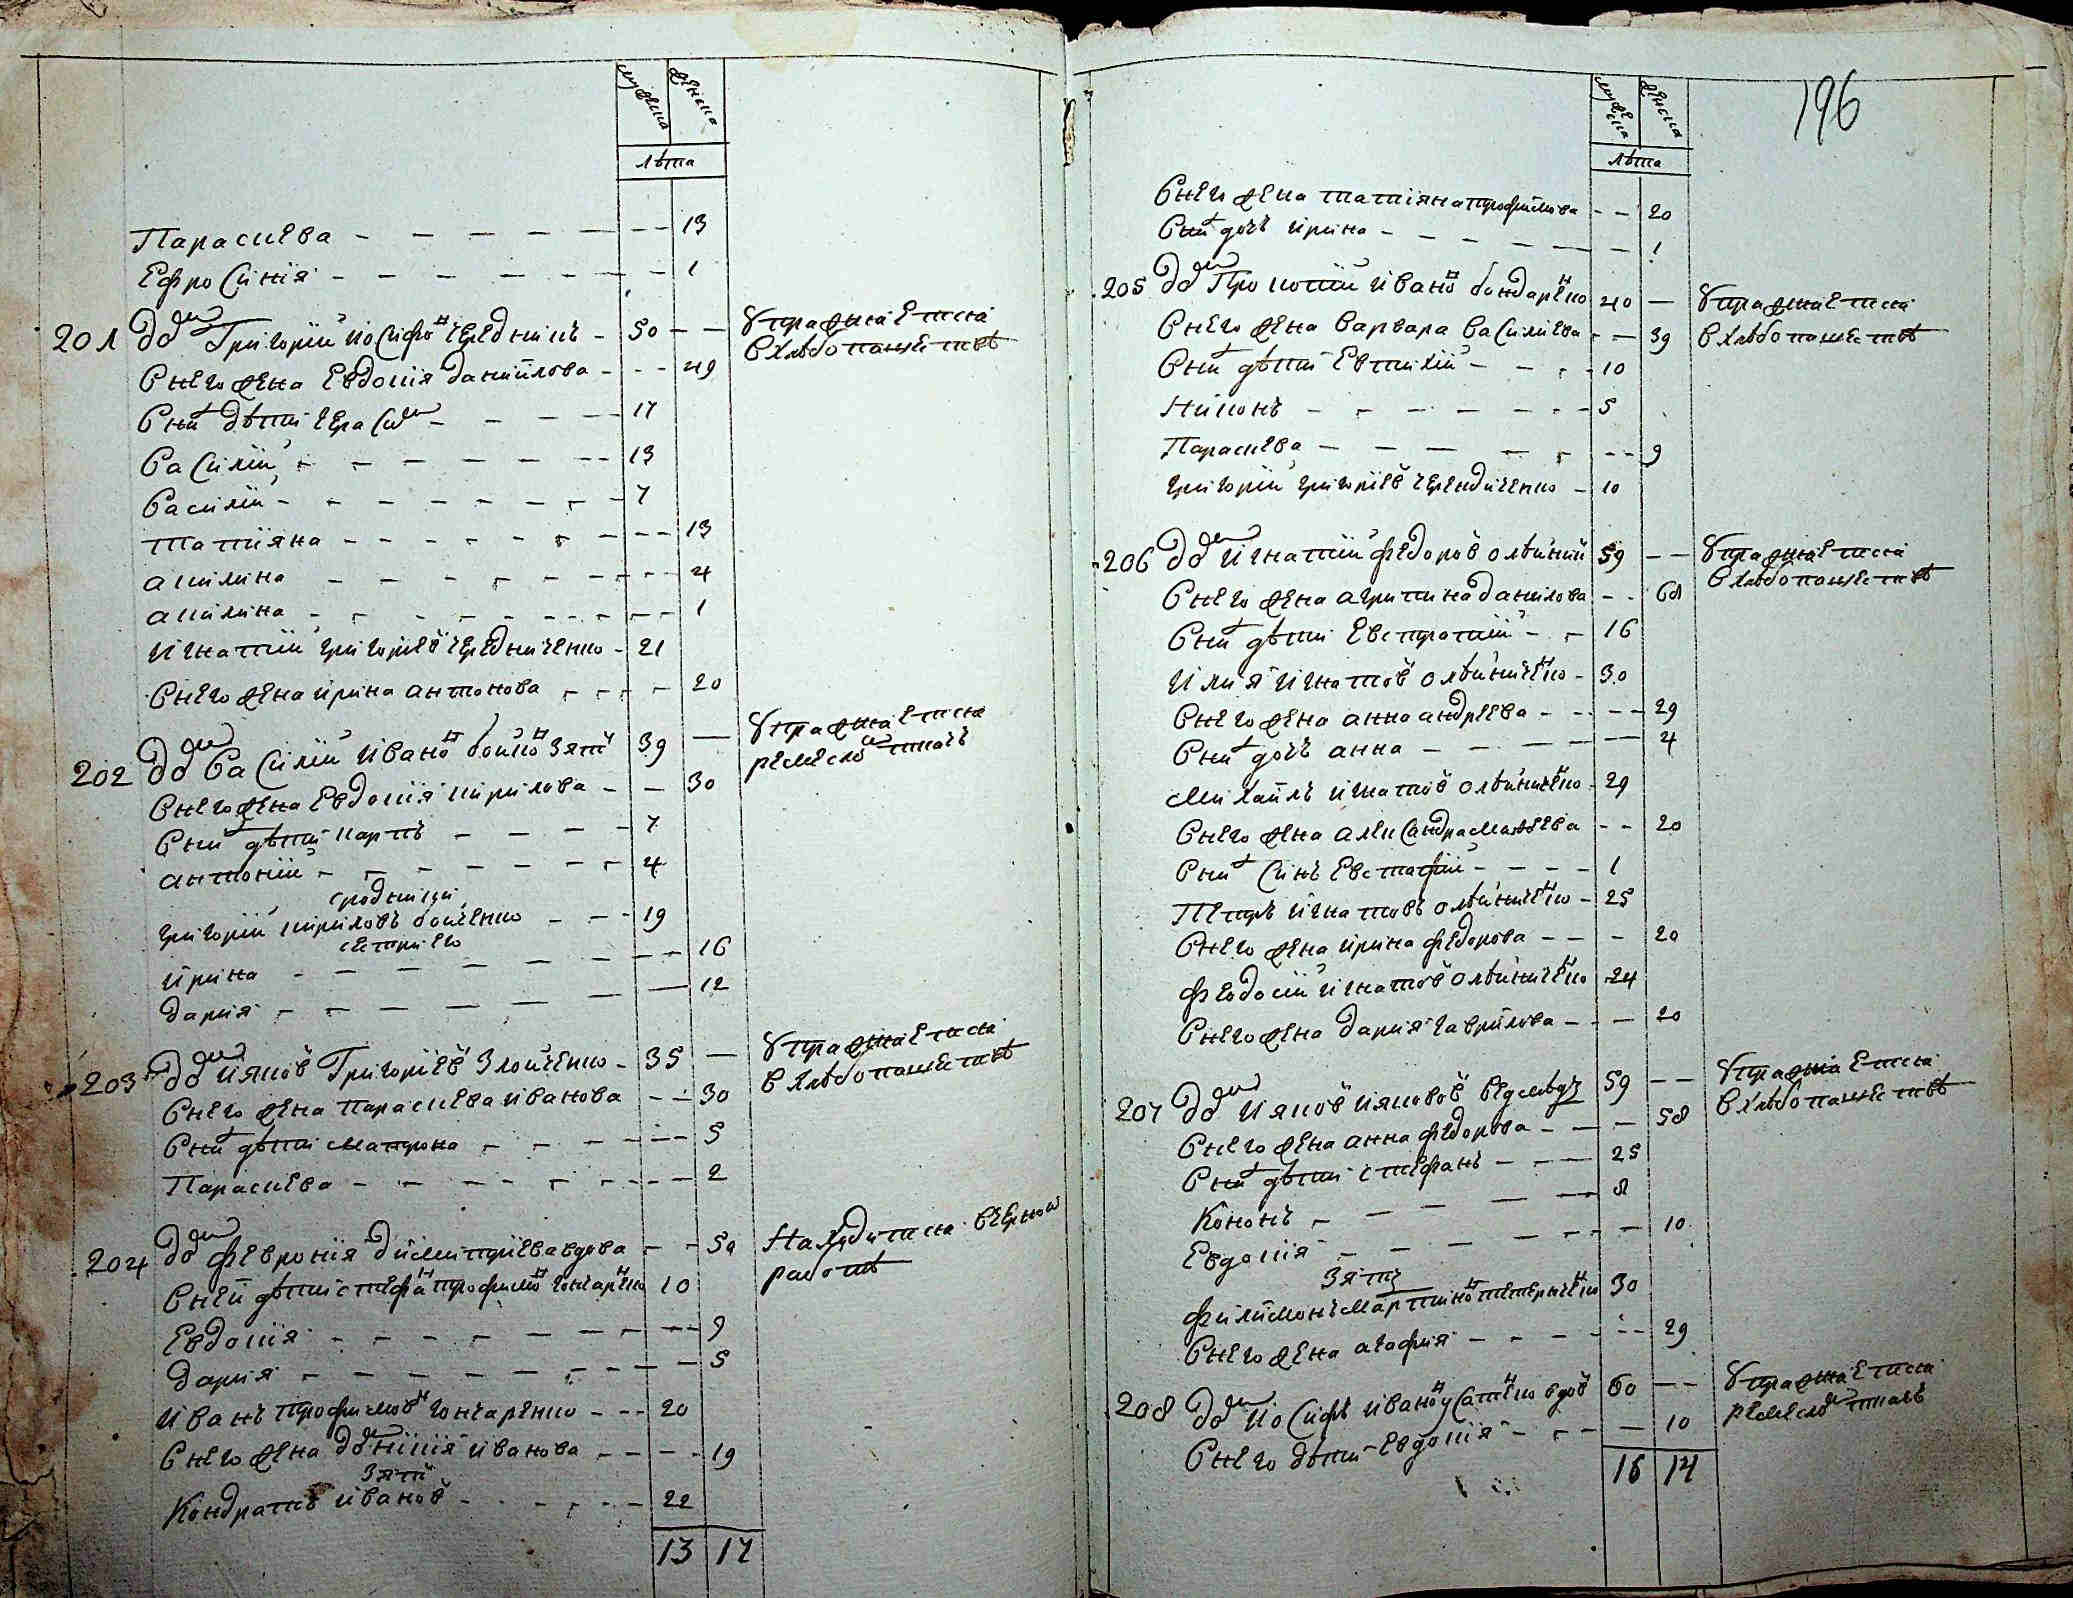 мужеска женска
лѣта
Параскева 13
Ефросинія 1
201 До^м Григорій Іосифо^в Чередникъ 50 Упражняется
в хлѣбопашествѣ
С него жена Евдокія Данiилова 49
С ни^х дѣти Гераси^м 17
Василій 13
Василій 7
Татіяна 13
Акилина 4
Акилина 1
Игнатій Григоріев Чередниченко 21
С него жена Ирина Антонова 20
202 До^м Василій Ивано^в Бойко зят 39 Упражняется
ремесло^м
С него жена Евдокія Кирилова 30
С ни^х дѣти Карпъ 7
Антоній 4
сродники
Григорій Кириловъ Бойченко 19
сестри его
Ирина 16
Дарія 12
203 До^м Іяков Григоріев Злойченко 35 Упражняется
в хлѣбопашествѣ
С него жена Параскева Иванова 30
С ни^х дѣти Матрона 5
Параскева 2
204 До^м Февронія Димитріева вдова 50 Находится в чорной
работѣ
С ней дѣти Стефа^н Трофимо^в Гончаре^нко 10
Евдокія 9
Дарія 5
Иванъ Трофимов Гончаренко 20
С него жена Домникія Иванова 19
зят
Кондратъ Иванов 22
13 17
196
мужеска женска
лѣта
С него жена Татіяна Трофимова 20
С ни^х дочъ Ирина 1
205 До^м Прокопій Ивано^в Бондаре^нко 40 Упражняется
в хлѣбопашествѣ
С него жена Варвара Василиева 39
С ни^х дѣти Евтихій 10
Никонъ 5
Параскева 9
Григорій Григоріев Черендиченко 10
206 До^м Игнатій Федоров Олѣйник 59 Упражняется
в хлѣбопашествѣ
С него жена Агрипина Данилова 60
С ни^х дѣти Евстратій 16
Илия Игнатов Олѣйниче^нко 30
С него жена Анна Андреева 29
С ни^х дочъ Анна 4
Михаилъ Игнатов Олѣйниче^нко 29
С него жена Александра Матвѣева 20
С ни^х синъ Евстафій 1
Петръ Игнатовъ Олѣйниче^нко 25
С него жена Ирина Федорова 20
Феодосій Игнатов Олѣйниче^нко 24
С него жена Дария Гаврилова 20
207 До^м Іяков Іяковов Ведмѣдъ 59 Упражняется
в хлѣбопашествѣ
С него жена Анна Федорова 58
С ни^х дѣти Стефанъ 25
Кононъ 8
Евдокія 10
зятъ
Филимонъ Мартино^в Тетерниче^нко 30
С него жена Агафия 29
208 До^м Іосифъ Ивано^в Усате^нко вдов 60 Упражняется
ремесло^м
С него дѣти Евдокія 10
16 14